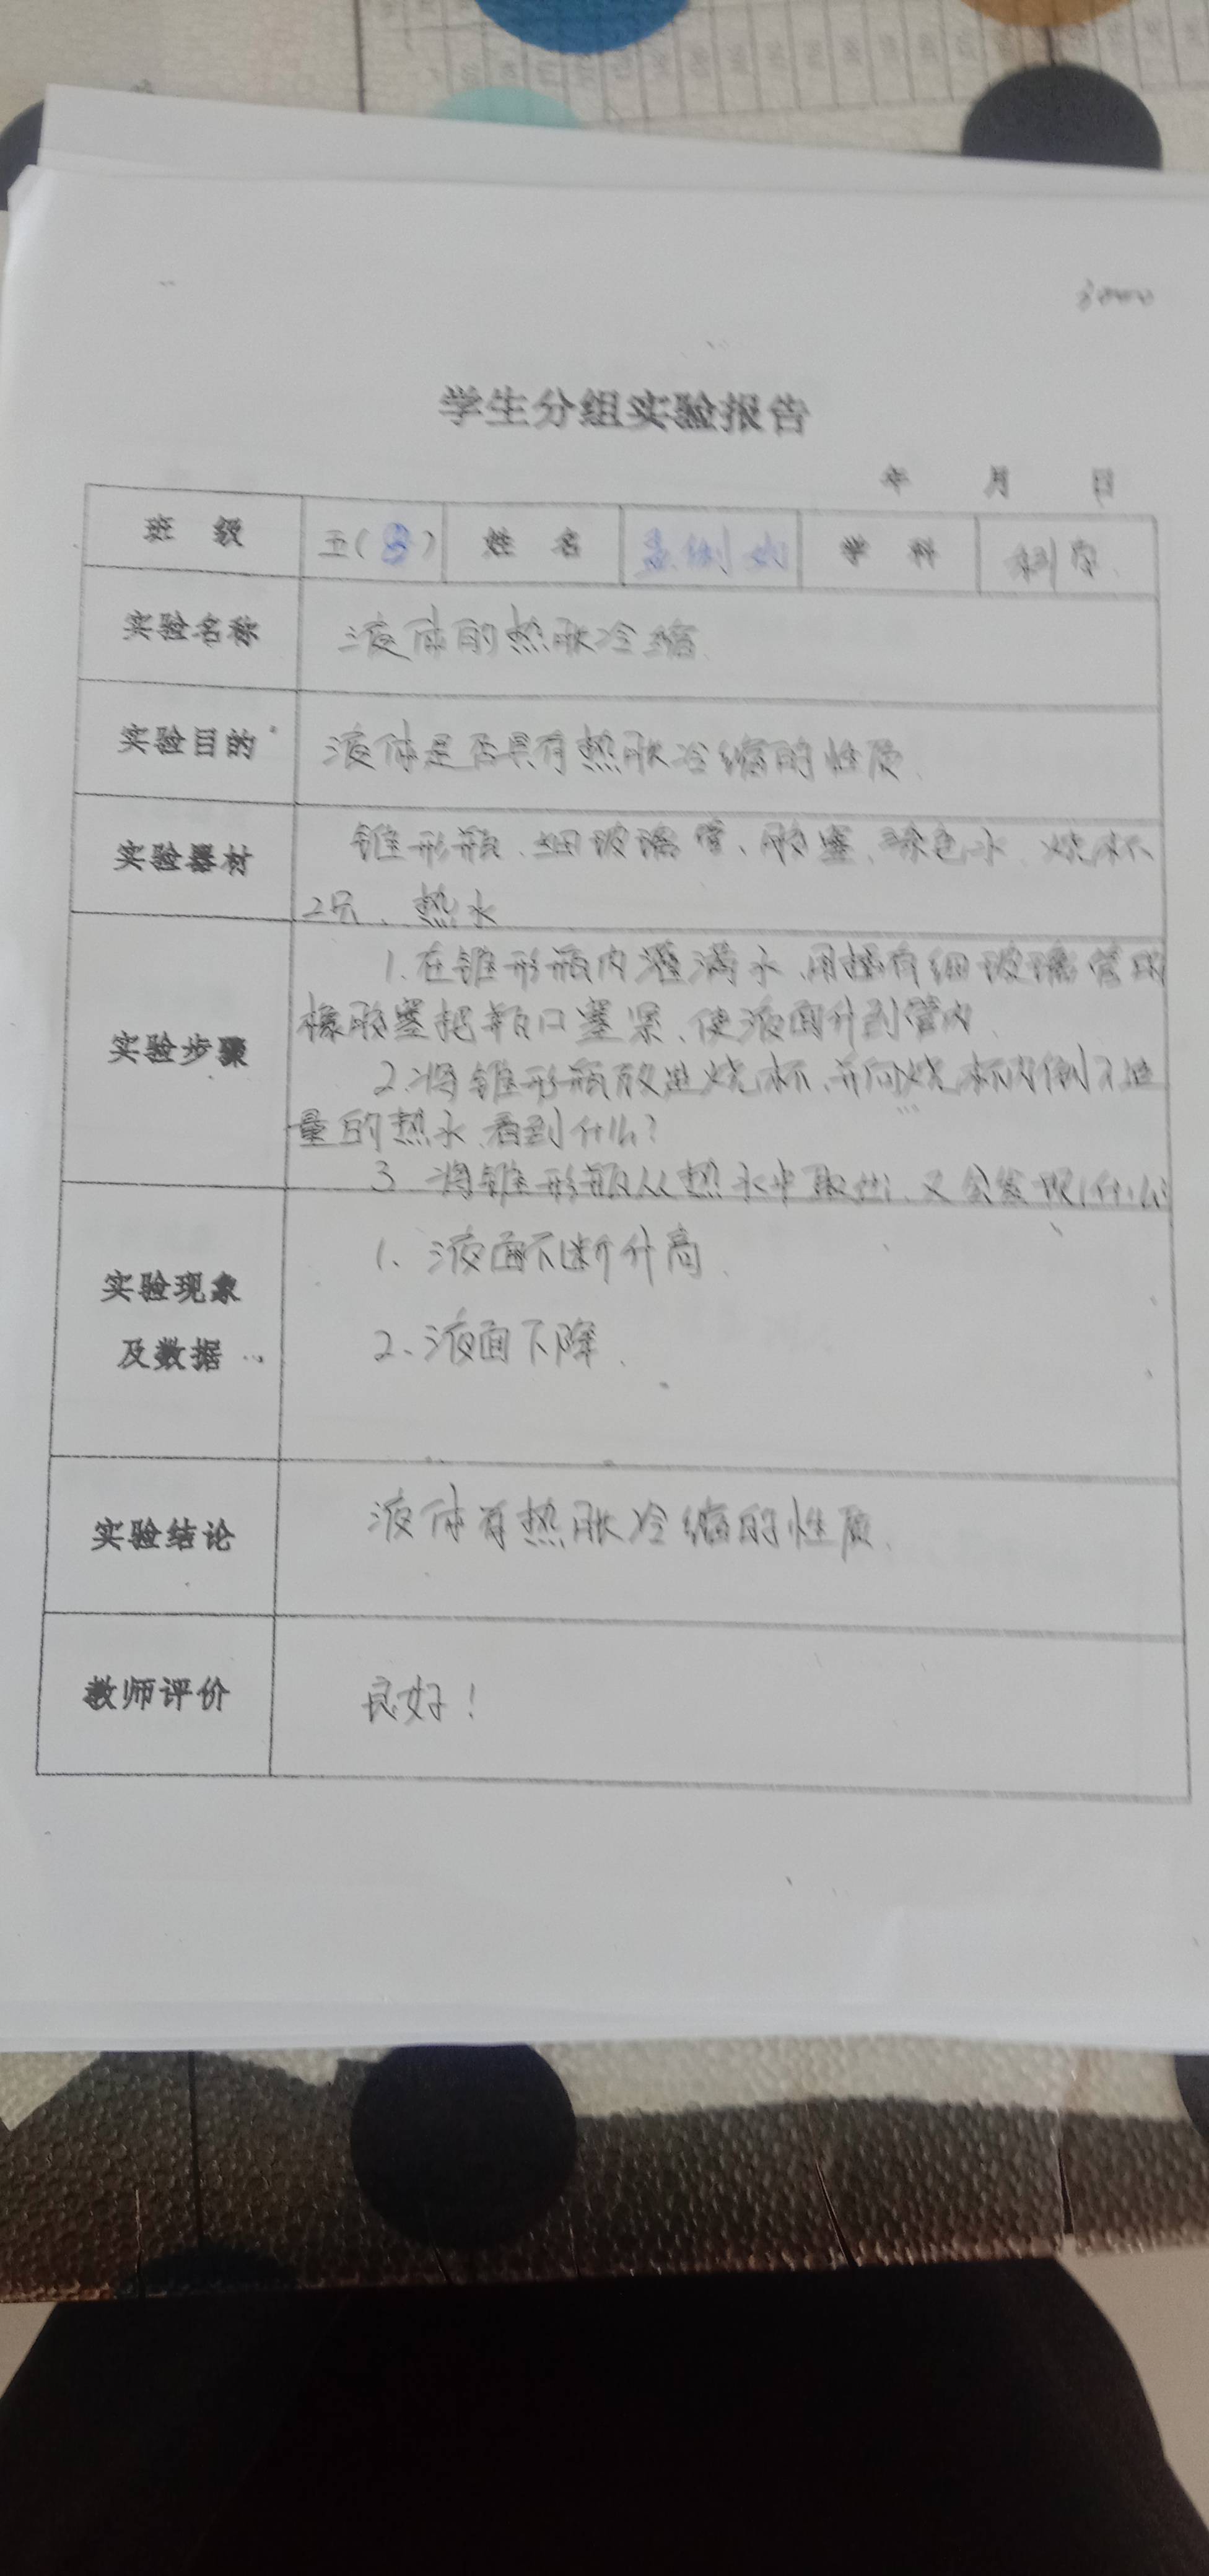 学生分组实验报告
年 月 日
班 级 五( ) 姓 名 学 科 科学.
实验名称 液体的热胀冷缩.
实验目的 液体是否具有热胀冷缩的性质.
实验器材 锥形瓶、细玻璃管、胶塞、染色水、烧杯
2只、热水
实验步骤
1.在锥形瓶内灌满水、用插有细玻璃管的
橡胶塞把瓶口塞紧、使液面升到管内.
2.将锥形瓶放进烧杯、并向烧杯内倒入适
量的热水、看到什么?
3. 将锥形瓶从热水中取出、又会发现什么
实验现象
及数据
1、液面不断升高.
2、液面下降.
实验结论 液体有热胀冷缩的性质.
教师评价 良好!